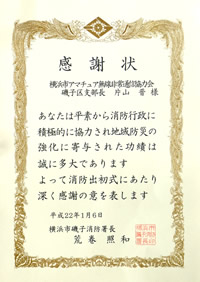 感謝状
横浜市アマチュア無線非常通信協力会
磯子区支部長 片山 晋 様
あなたは平素から消防行政に
積極的に協力され地域防災の
強化に寄与された功績は
誠に多大であります
よって消防出初式にあたり
深く感謝の意を表します
平成22年1月6日
横浜市磯子消防署長
荒巻 照和